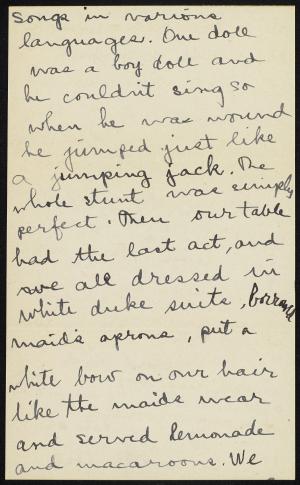 songs in various
languages. One doll
was a boy doll and
he couldn't sing so
when he was wound
he jumped just like
a jumping jack. The
whole stunt was simply
perfect. Then our table
had the last act, and
we all dressed in
white duke suits, borrowed
maid's aprons, put a
white bow on our hair
like the maids wear
and served lemonade
and macaroons. We